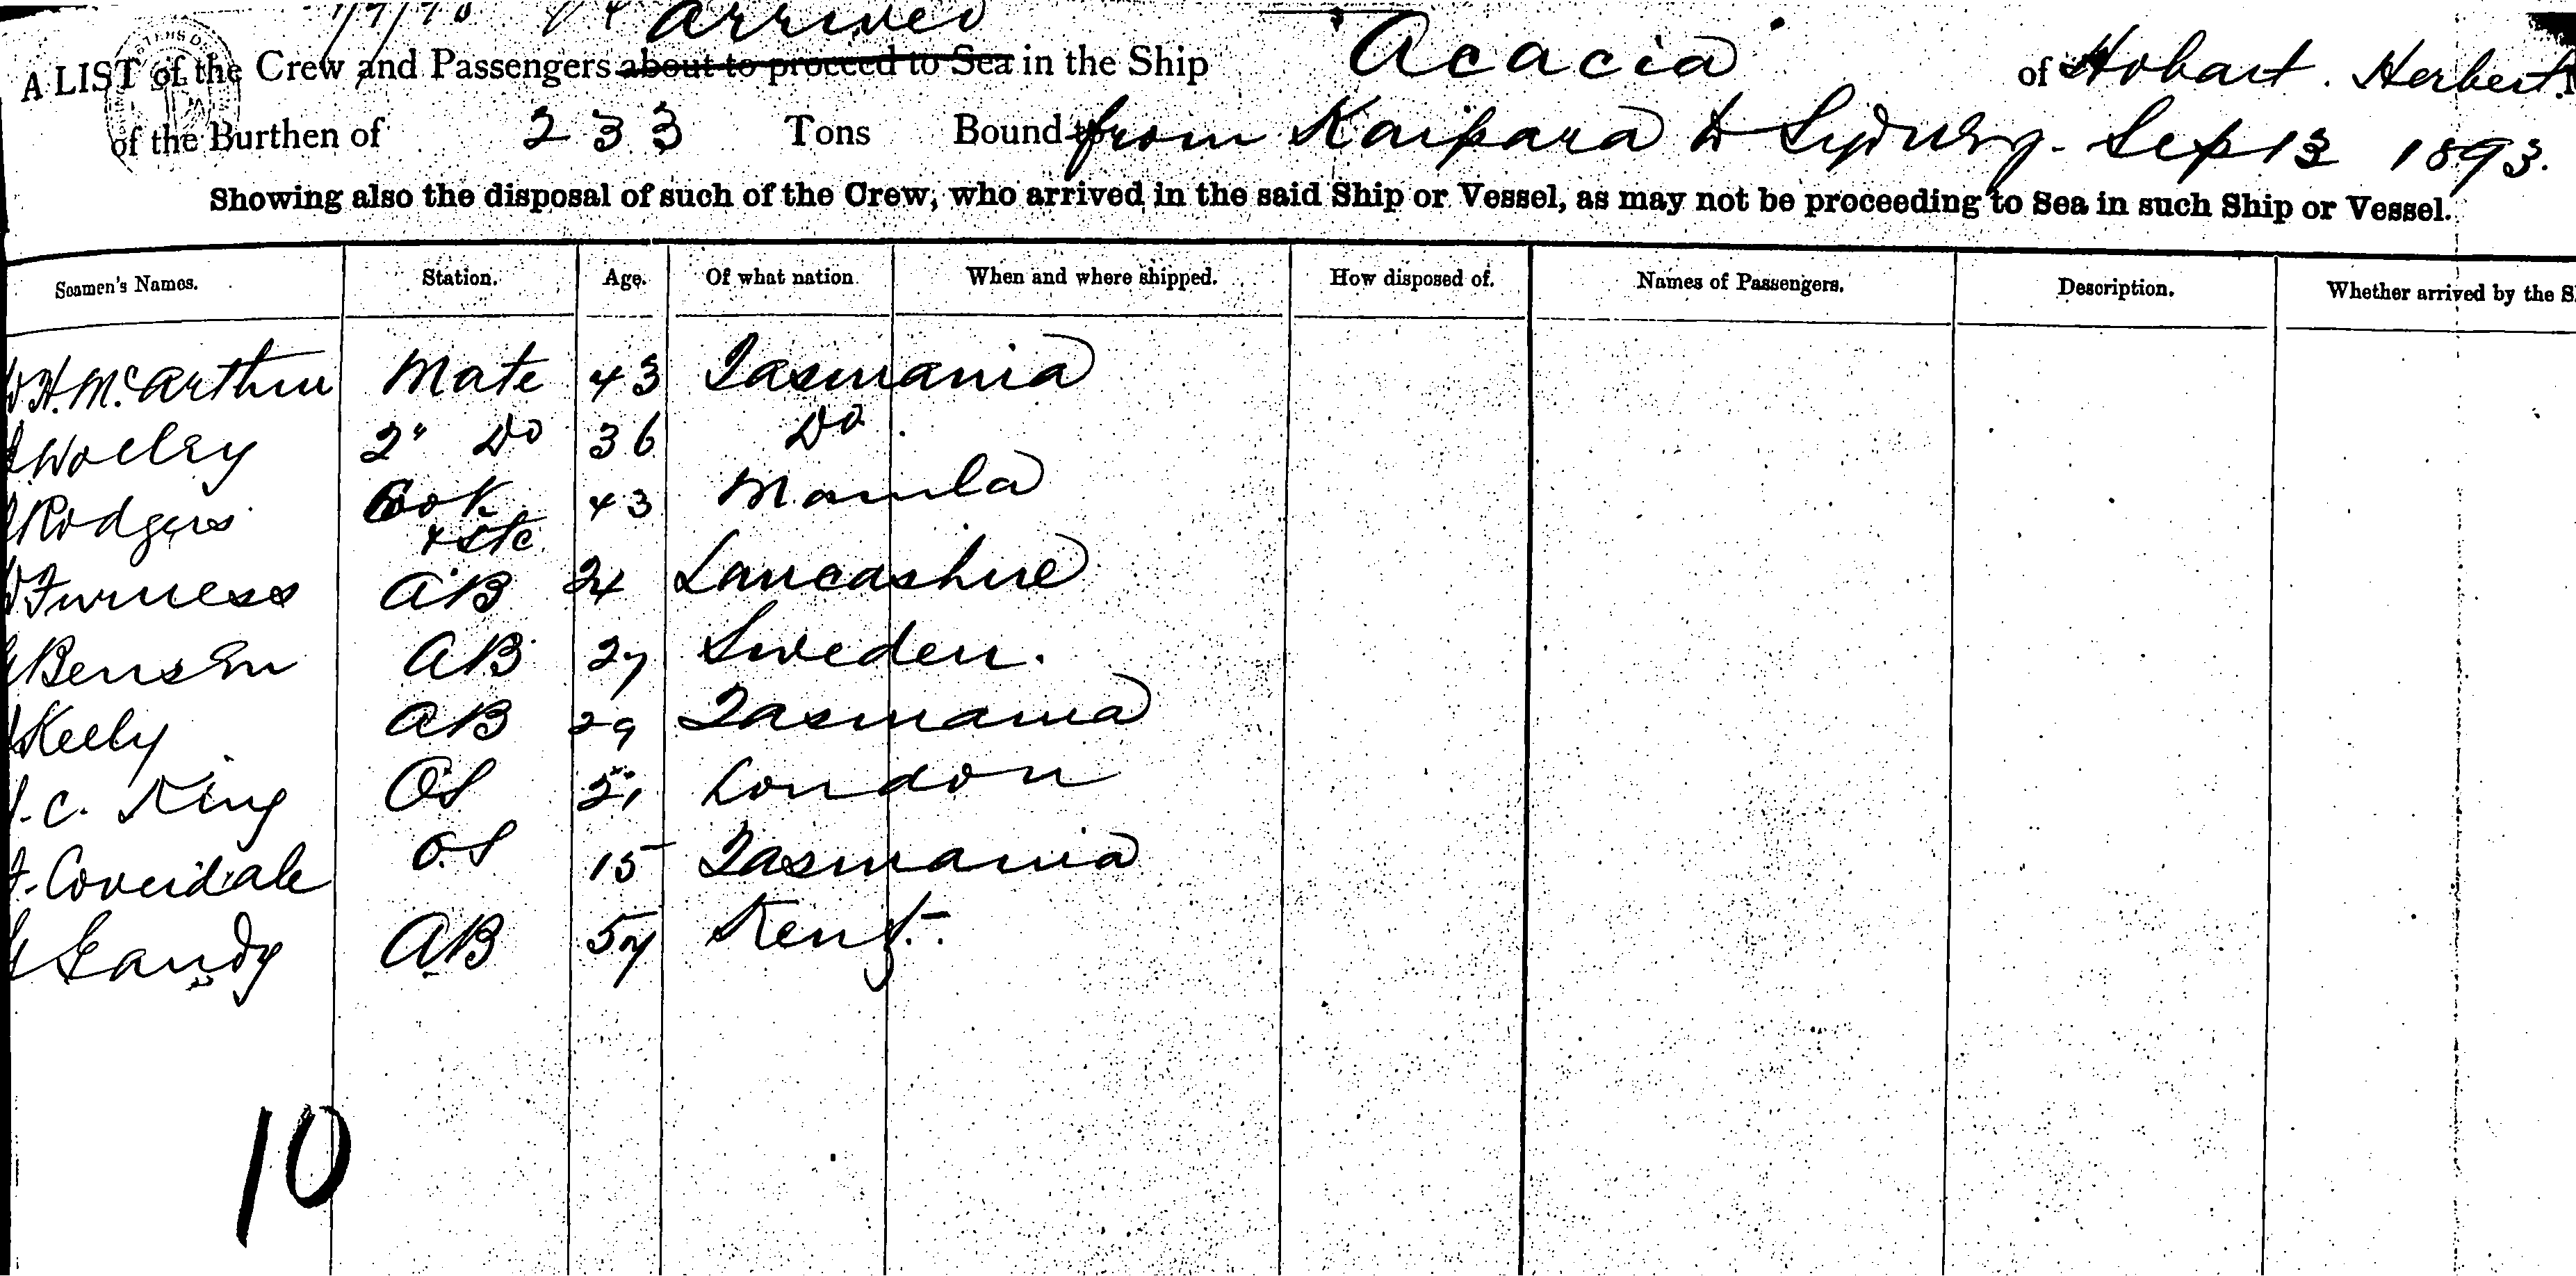 arrived
A LIST of the Crew and Passengers about to proceed to Sea in the Ship Acacia of Hobart. Herbert
of the Burthen of 233 Tons Bound from Kaipara to Sydney. Sep 13 1893.
Showing also the disposal of such of the Crew, who arrived in the said Ship or Vessel, as may not be proceeding to Sea in such Ship or Vessel.
Seamen's Names. Station. Age. Of what nation When and where shipped. How disposed of. Names of Passengers. Description. Whether arrived by the
H. McArthur Mate 43 Tasmania
Wolley 2" Do 36 Do
Rodgers Cook 43 Manila
& Ste
Furness AB 24 Lancashire
Bensen AB 27 Sweden.
Keely AB 29 Tasmania
C. King OS 21 London
Coverdale O.S 15 Tasmania
Gandy AB 57 Kent.
10